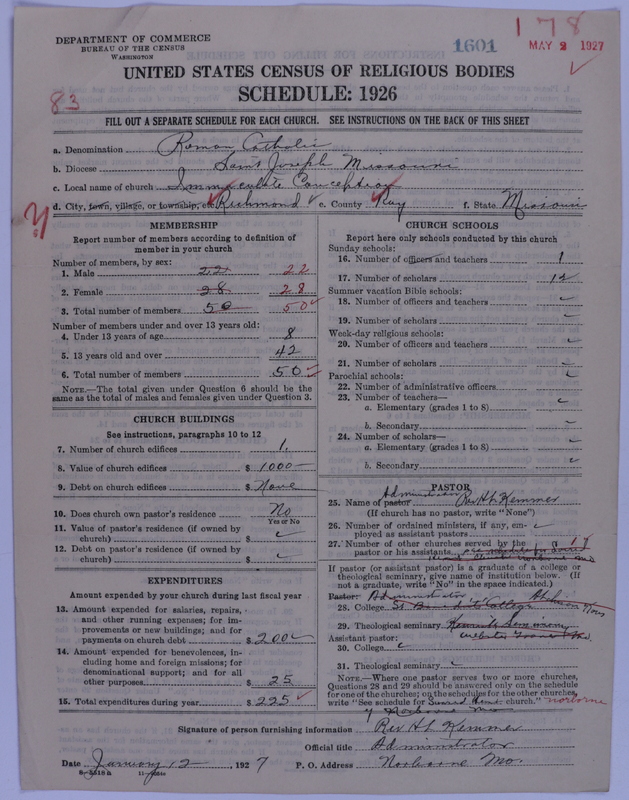 178
DEPARTMENT OF COMMERCE
BUREAU OF THE CENSUS
WASHINGTON
1601
MAY 2 1927
UNITED STATES CENSUS OF RELIGIOUS BODIES
SCHEDULE: 1926
83
FILL OUT A SEPARATE SCHEDULE FOR EACH CHURCH. SEE INSTRUCTIONS ON THE BACK OF THIS SHEET
a. Denomination Roman Catholic
b. Diocese Saint Joseph Missouri
c. Local name of church Immaculate Conception
d. City, town, village, or township, etc. Richmond e. County Ray f. State Missouri
MEMBERSHIP
Report number of members according to definition of
member in your church
Number of members, by sex:
1. Male 22 22
2. Female 28 28
3. Total number of members 50 50
Number of members under and over 13 years old:
4. Under 13 years of age 8
5. 13 years old and over 42
6. Total number of members 50
NOTE.—The total given under Question 6 should be the
same as the total of males and females given under Question 3.
CHURCH BUILDINGS
See instructions, paragraphs 10 to 12
7. Number of church edifices 1.
8. Value of church edifices $ 1000
9. Debt on church edifices $ None
10. Does church own pastor's residence No
Yes or No
11. Value of pastor's residence (if owned by
church) $
12. Debt on pastor's residence (if owned by
church) $
EXPENDITURES
Amount expended by your church during last fiscal year
13. Amount expended for salaries, repairs,
and other running expenses; for im-
provements or new buildings; and for
payments on church debt $ 200
14. Amount expended for benevolences, in-
cluding home and foreign missions; for
denominational support; and for all
other purposes $ 25
15. Total expenditures during year $ 225
CHURCH SCHOOLS
Report here only schools conducted by this church
Sunday schools:
16. Number of officers and teachers 1
17. Number of scholars 12
Summer vacation Bible schools:
18. Number of officers and teachers
19. Number of scholars
Week-day religious schools:
20. Number of officers and teachers
21. Number of scholars
Parochial schools:
22. Number of administrative officers
23. Number of teachers—
a. Elementary (grades 1 to 8)
b. Secondary
24. Number of scholars—
a. Elementary (grades 1 to 8)
b. Secondary
PASTOR
Administrator
25. Name of pastor Rev H L Kemmer
(If church has no pastor, write "None")
26. Number of ordained ministers, if any, em-
ployed as assistant pastors
27. Number of other churches served by the
pastor or his assistants
If pastor (or assistant pastor) is a graduate of a college or
theological seminary, give name of institution below. (If
not a graduate, write "No" in the space indicated.)
Pastor: Administrator
28. College St Benedict College Atchison Kans
29. Theological seminary Kenrick Seminary
Webster Groves Mo.
Assistant pastor:
30. College
31. Theological seminary
NOTE.—Where one pastor serves two or more churches,
Questions 28 and 29 should be answered only on the schedule
for one of the churches; on the schedules for the other churches,
write "See schedule for Sacred Heart church." Norborne
of Norborne Mo
Signature of person furnishing information Rev H L Kemmer
Official title Administrator
Date January 12, 1927 P. O. Address Norborne Mo.